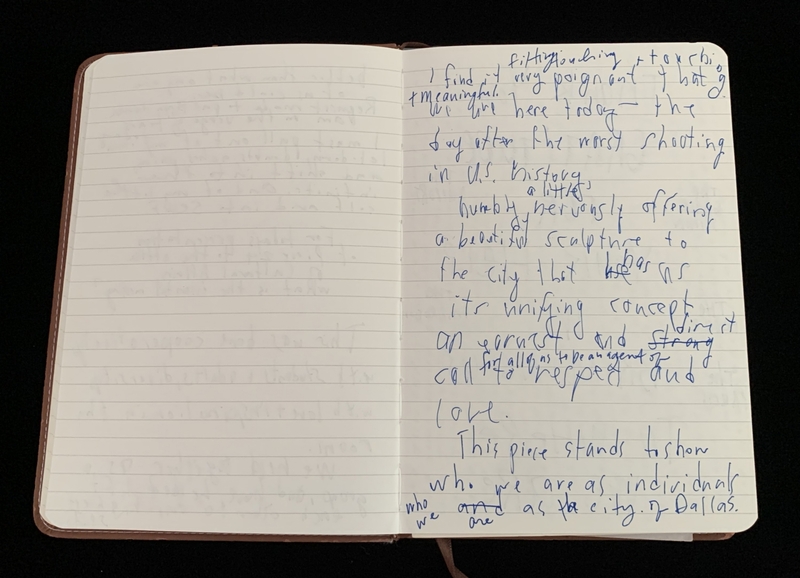 fitting touching + touching
I find it very poignant that
+ meaningful.
we are here today — the
day after the worst shooting
in U.S. history,
a little
humbly, nervously offering
a beautiful sculpture to
the city that has as
its unifying concept
an earnest and strong direct
for all of us to be an agent of
call to respect and
love.
This piece stands to show
who we are as individuals
who we and are as the city of Dallas.